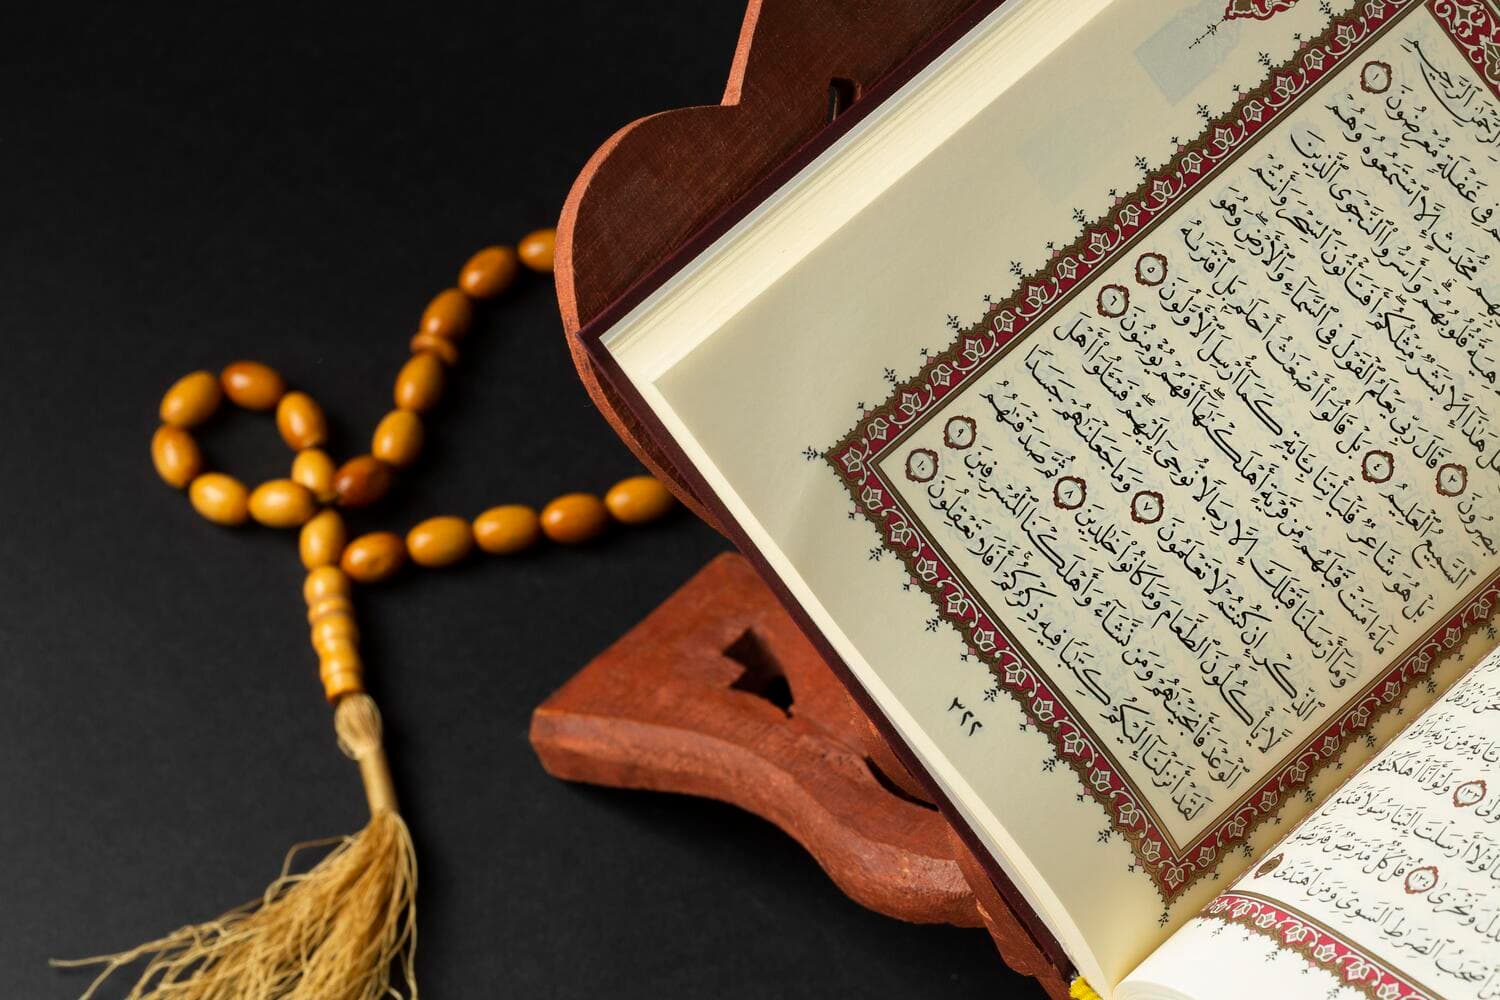 ٱلرَّحْمَٰنِ ٱلرَّحِيمِ
فِى غَفْلَةٍ مُّعْرِضُونَ ١
مُّحْدَثٍ إِلَّا ٱسْتَمَعُوهُ وَهُمْ
لَاهِيَةً قُلُوبُهُمْ ۗ وَأَسَرُّوا۟ ٱلنَّجْوَى ٱلَّذِينَ
هَلْ هَٰذَآ إِلَّا بَشَرٌ مِّثْلُكُمْ ۖ أَفَتَأْتُونَ ٱلسِّحْرَ وَأَنتُمْ
تُبْصِرُونَ ٣ قَالَ رَبِّى يَعْلَمُ ٱلْقَوْلَ فِى ٱلسَّمَآءِ وَٱلْأَرْضِ ۖ وَهُوَ
ٱلسَّمِيعُ ٱلْعَلِيمُ ٤ بَلْ قَالُوٓا۟ أَضْغَٰثُ أَحْلَٰمٍۭ بَلِ ٱفْتَرَىٰهُ
بَلْ هُوَ شَاعِرٌ فَلْيَأْتِنَا بِـَٔايَةٍ كَمَآ أُرْسِلَ ٱلْأَوَّلُونَ ٥
مَآ ءَامَنَتْ قَبْلَهُم مِّن قَرْيَةٍ أَهْلَكْنَٰهَآ ۖ أَفَهُمْ يُؤْمِنُونَ ٦
وَمَآ أَرْسَلْنَا قَبْلَكَ إِلَّا رِجَالًا نُّوحِىٓ إِلَيْهِمْ ۖ فَسْـَٔلُوٓا۟ أَهْلَ
ٱلذِّكْرِ إِن كُنتُمْ لَا تَعْلَمُونَ ٧ وَمَا جَعَلْنَٰهُمْ جَسَدًا
لَّا يَأْكُلُونَ ٱلطَّعَامَ وَمَا كَانُوا۟ خَٰلِدِينَ ٨ ثُمَّ صَدَقْنَٰهُمُ
ٱلْوَعْدَ فَأَنجَيْنَٰهُمْ وَمَن نَّشَآءُ وَأَهْلَكْنَا ٱلْمُسْرِفِينَ ٩
لَقَدْ أَنزَلْنَآ إِلَيْكُمْ كِتَٰبًا فِيهِ ذِكْرُكُمْ ۖ أَفَلَا تَعْقِلُونَ ١٠
٣٢٢
بِـَٔايَةٍ مِّن رَّبِّهِۦٓ
١٣٣ وَلَوْ أَنَّآ أَهْلَكْنَٰهُم
لَوْلَآ أَرْسَلْتَ إِلَيْنَا رَسُولًا فَنَتَّبِعَ
وَنَخْزَىٰ ١٣٤ قُلْ كُلٌّ مُّتَرَبِّصٌ فَتَرَبَّصُوا۟
أَصْحَٰبُ ٱلصِّرَٰطِ ٱلسَّوِىِّ وَمَنِ ٱهْتَدَىٰ